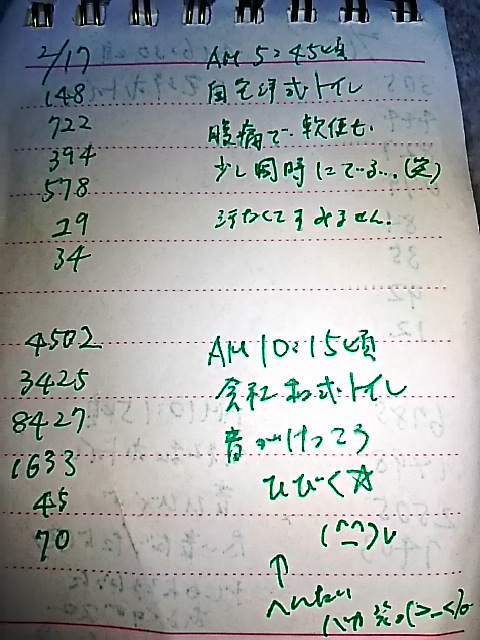 2/17 AM 5:45頃
148 自宅洋式トイレ
722 腹痛で、軟便も、
394 少し同時にでる…(笑)
578
29 汚なくてすみません。
34
4502 AM 10:15頃
3425 会社和式トイレ
8427 音がけっこう
1633 ひびく☆
45
70 (^^)v
↑
へんたい
バカ 笑。(>_<)o